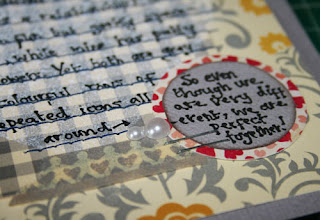 for but
while
Yet both are very
colourful rows of
repeated icons all
around →
So even
though we
are very diff
erent, we are
perfect
together